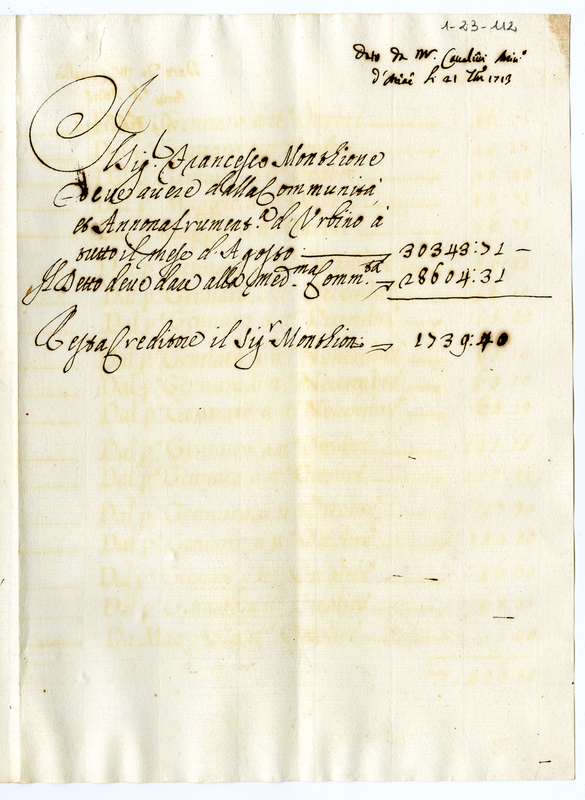 1-23-112
Dato da Mr. Cavalini
d' li 21 1713
Il Sig.r Francesco Monthione
deve avere dalla Communità
et Annona frument.a d'Urbino à
tutto il mese d'Agosto 30343:71 -
Il Detto deve dare alla med.ma Comm.tà 28604:31
Resta Creditore il Sig.r Monthion: 1739:40